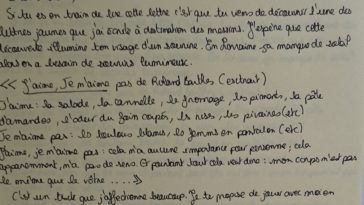 Si tu es en train de lire cette lettre c'est que tu viens de découvrir l'une des
lettres jaunes que j'ai écrit à destination des J'espère que cette
découverte illumine ton visage d'un sourire. En ça manque de soleil
alors on a besoin de sourires lumineux.
<< J'aime, Je n'aime pas de Roland Barthes (extrait)
J'aime : la salade, la cannelle, le fromage, les piments, la pâte
d'amandes, l'odeur du foin coupé, les roses, les pivoines (etc)
Je n'aime pas : les loulous blancs, les femmes en pantalon (etc)
J'aime, je n'aime pas : cela n'a aucune importance pour personne ; cela
apparemment, n'a pas de sens. Et pourtant tout cela veut dire : mon corps n'est pas
le même que le vôtre .... >>
C'est un truc que j'affectionne beaucoup. Je te propose de jouer avec moi en